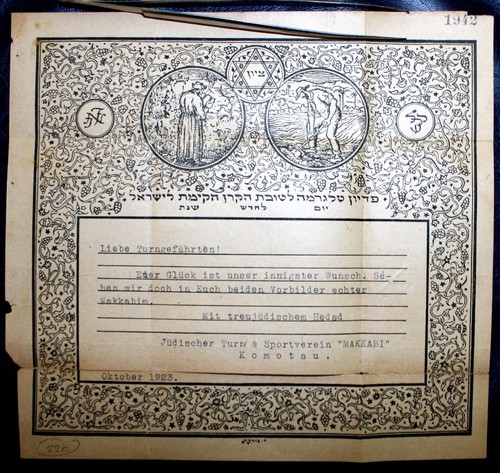 1942
ציון
פדיון טלגרמה לטובת הקרן הקימת לישראל.
יום לחדש שנת
Liebe Turngefährten!
Euer Glück ist unser innigster Wunsch. Se-
hen wir doch in Euch beiden Vorbilder echter
Makkabim.
Mit treujüdischem Hedad
Jüdischer Turn & Sportverein "MAKKABI"
Komotau.
Oktober 1923.